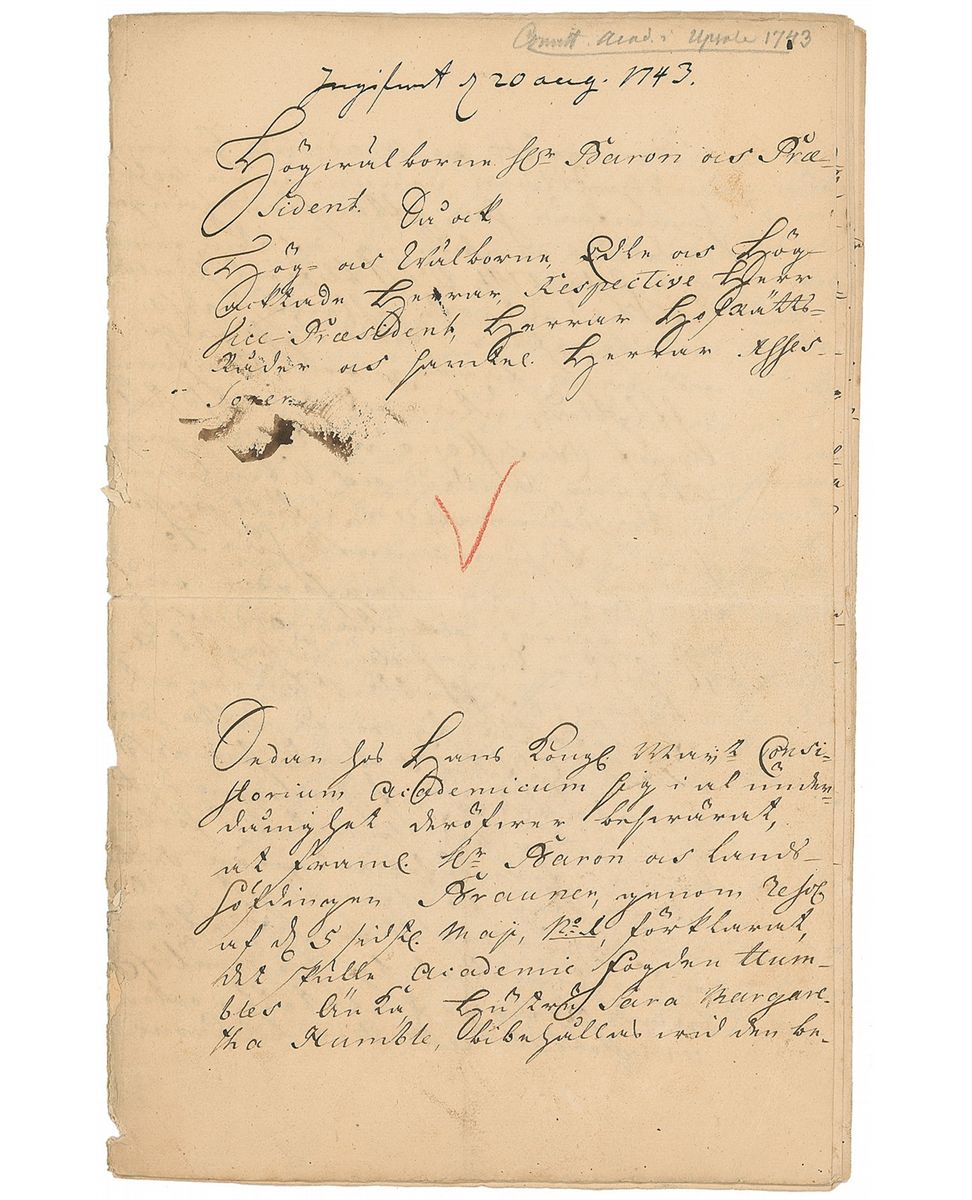 Acad. i Upsala 1743
Ingifwit d 20 aug. 1743.
Högwälborne H:r Baron och Præ-
sident. Så ock
Hög- och Wälborne, Edle och Hög-
acktade Herrar, Respective Herr
Vice-Præsident, Herrar HofRätts-
Råder och samtel. Herrar Asses-
sorer
Sedan hos Hans Kongl. May:t Consi-
storium Academicum sig i al under-
dånighet deröfwer beswärat,
at framl. H:r Baron och Lands-
höfdingen Brauner, genom Resol
af d 5 sidstl. Maji, N:o 1, förklarat,
det skulle Academie Fogden Hum-
bles Änka, Hustru Sara Margare-
tha Humble, bibehållas wid den be-